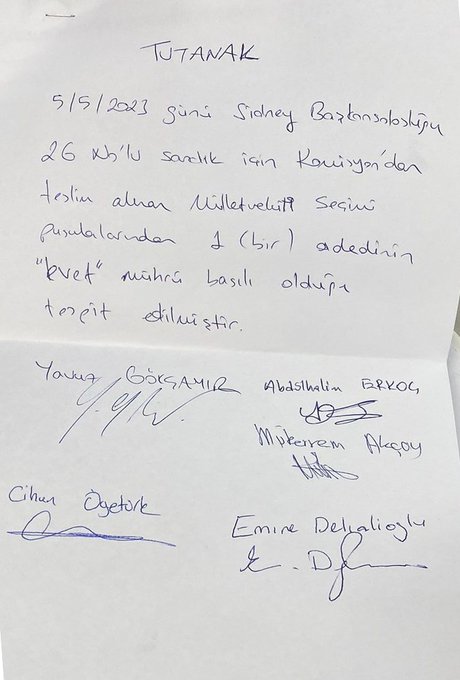 TUTANAK
5/5/2023 günü Sidney Başkonsolosluğu
26 No'lu sandık için Komisyon'dan
teslim alınan Milletvekili Seçimi
pusulalarından 1 (bir) adedinin
"Evet" mührü basılı olduğu
tespit edilmiştir.
Yavuz GÖKÇAMIR Abdulhalim ERKOÇ
Mükerrem Akçay
Cihan Ögetürk
Emine Delialioglu
E. D